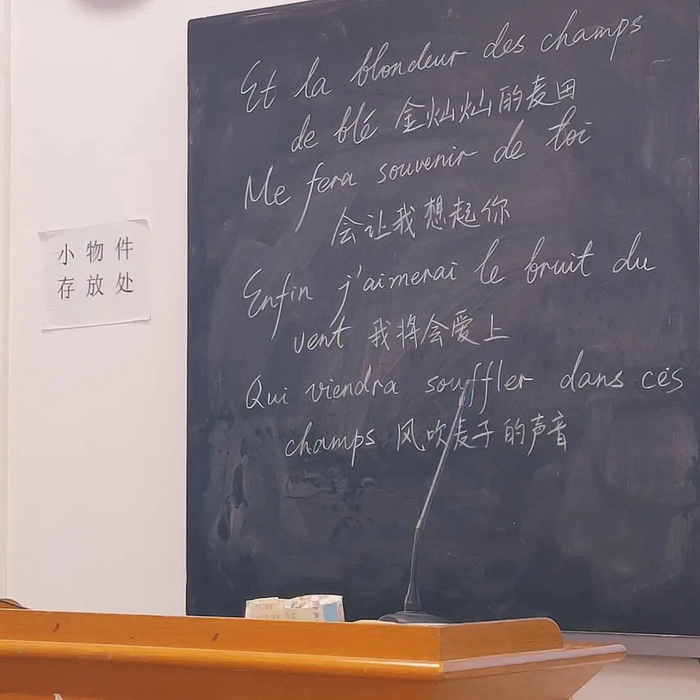 Et la blondeur des champs
de blé 金灿灿的麦田
Me fera souvenir de toi
会让我想起你
Enfin j'aimerai le bruit du
vent 我将会爱上
Qui viendra souffler dans ces
champs 风吹麦子的声音
小物件
存放处